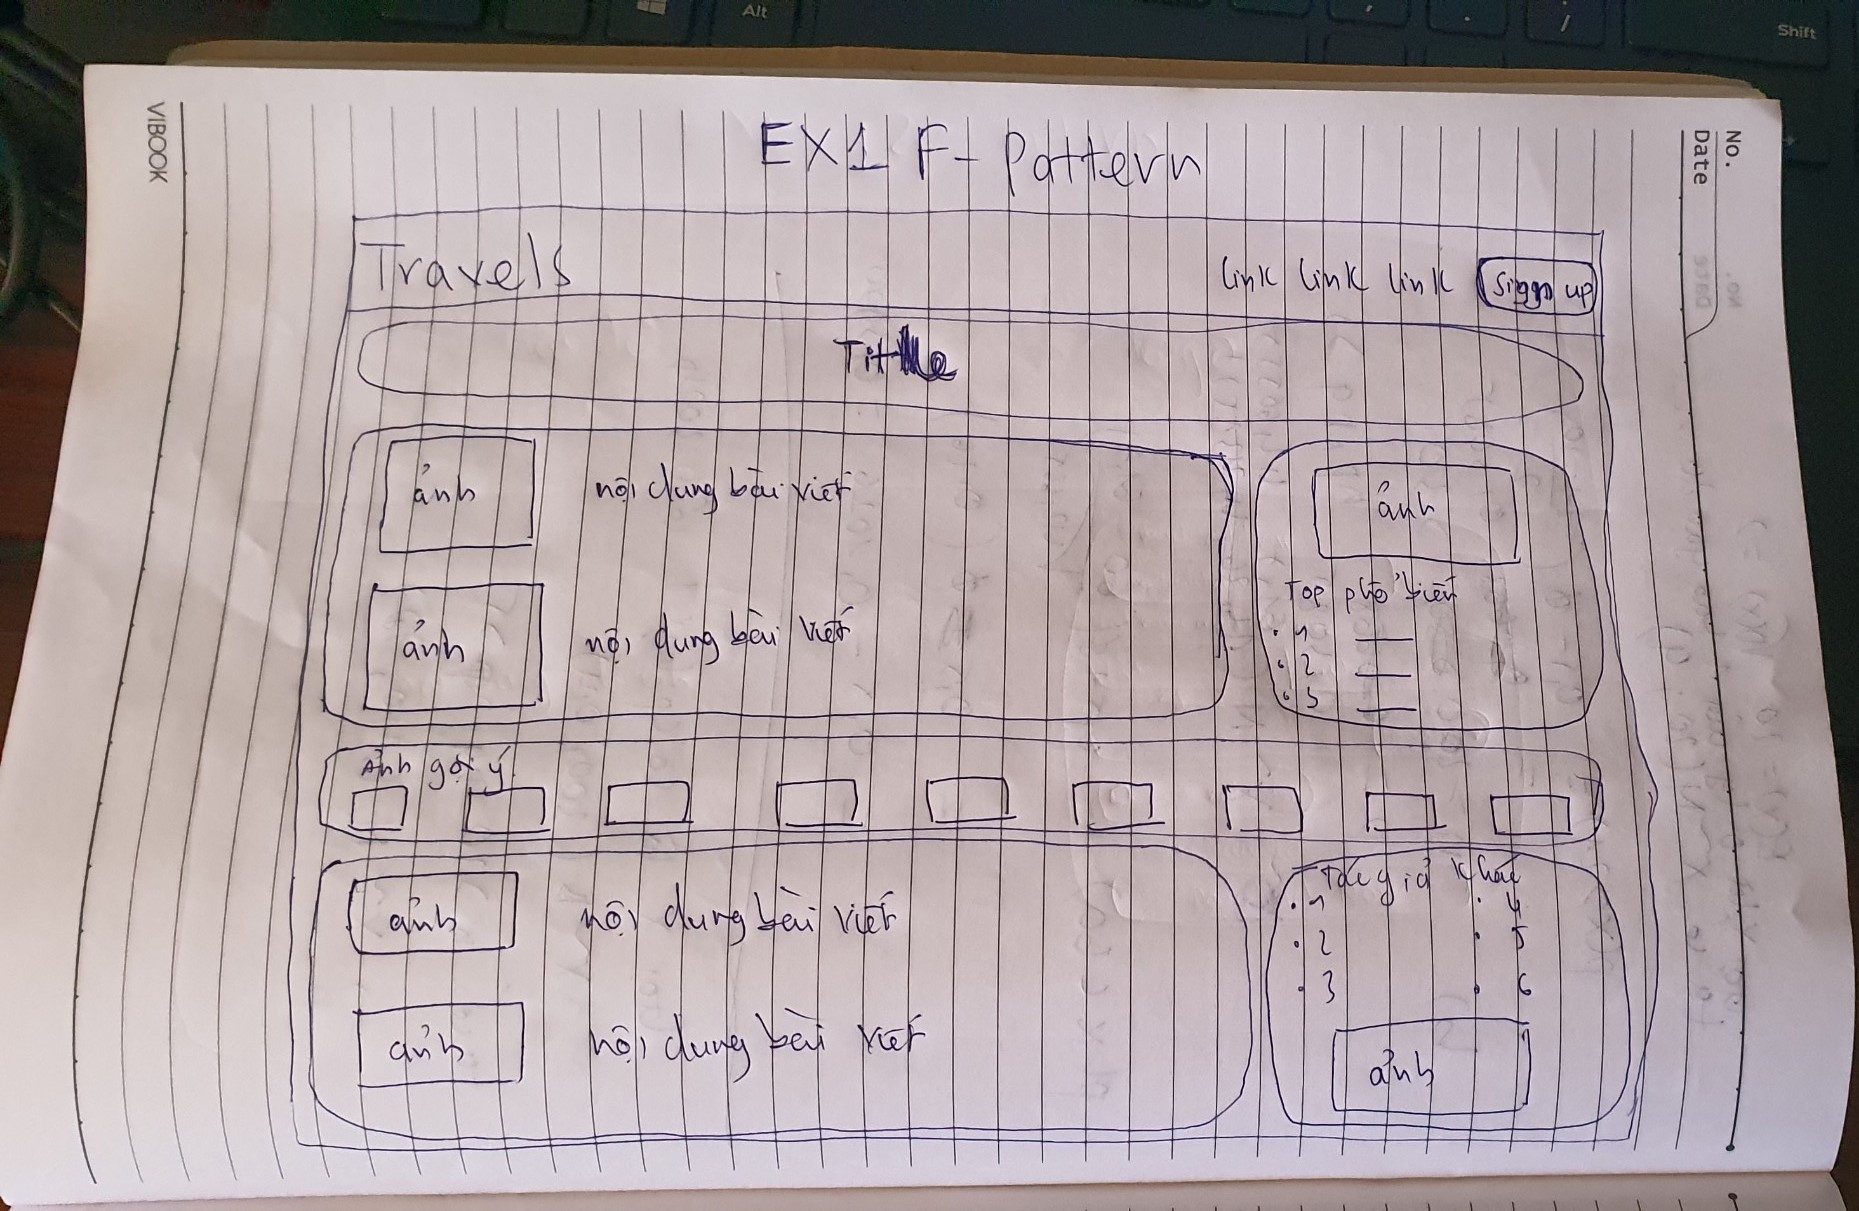 Alt
Shift
VIBOOK
No.
Date
EX1 F- Pattern
Travels link link link Siggn up
Tittle
ảnh nội dung bài viết
ảnh nội dung bài viết
ảnh
Top phổ biến
• 1
• 2
• 3
Ảnh gợi ý
ảnh nội dung bài viết
ảnh nội dung bài viết
Tác giả khác
• 1 • 4
• 2 • 5
• 3 • 6
ảnh